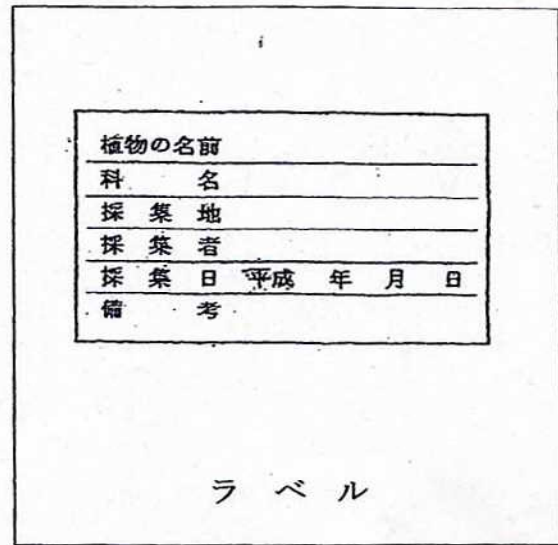 植物の名前
科 名
採 集 地
採 集 者
採 集 日 平成 年 月 日
備 考
ラ ベ ル